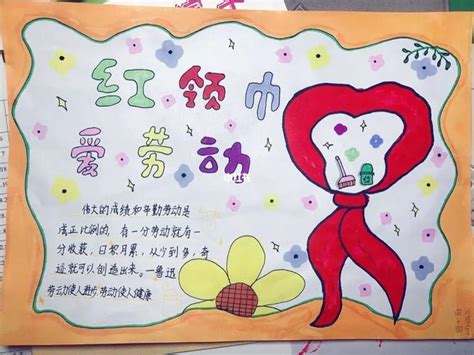 红领巾
爱劳动
伟大的成绩和辛勤劳动是
成正比例的，有一分劳动就有一
分收获，日积月累，从少到多，奇
迹就可以创造出来。—鲁迅
劳动使人进步 劳动使人健康